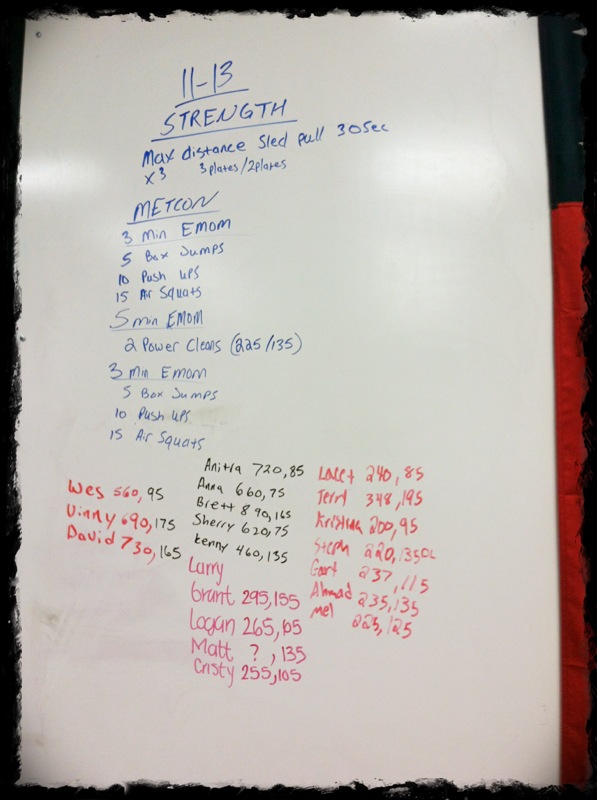 11-13
STRENGTH
Max distance Sled pull 30sec
x3 3plates/2plates
METCON
3 Min EMOM
5 Box Jumps
10 Push ups
15 Air Squats
5 min EMOM
2 Power Cleans (225/135)
3 Min Emom
5 Box Jumps
10 Push ups
15 Air Squats
Wes 560, 95
Vinny 690, 175
David 730, 165
Anitra 720, 85
Anna 660, 75
Brett 890, 165
Sherry 620, 75
Kenny 460, 135
Larry
Grant 295, 155
Logan 265,
Matt ? , 135
Cristy 255, 105
240, 85
348, 195
Kristina 200, 95
Steph 220, 135
237, 115
Ahmad 235, 135
Mel 225, 125